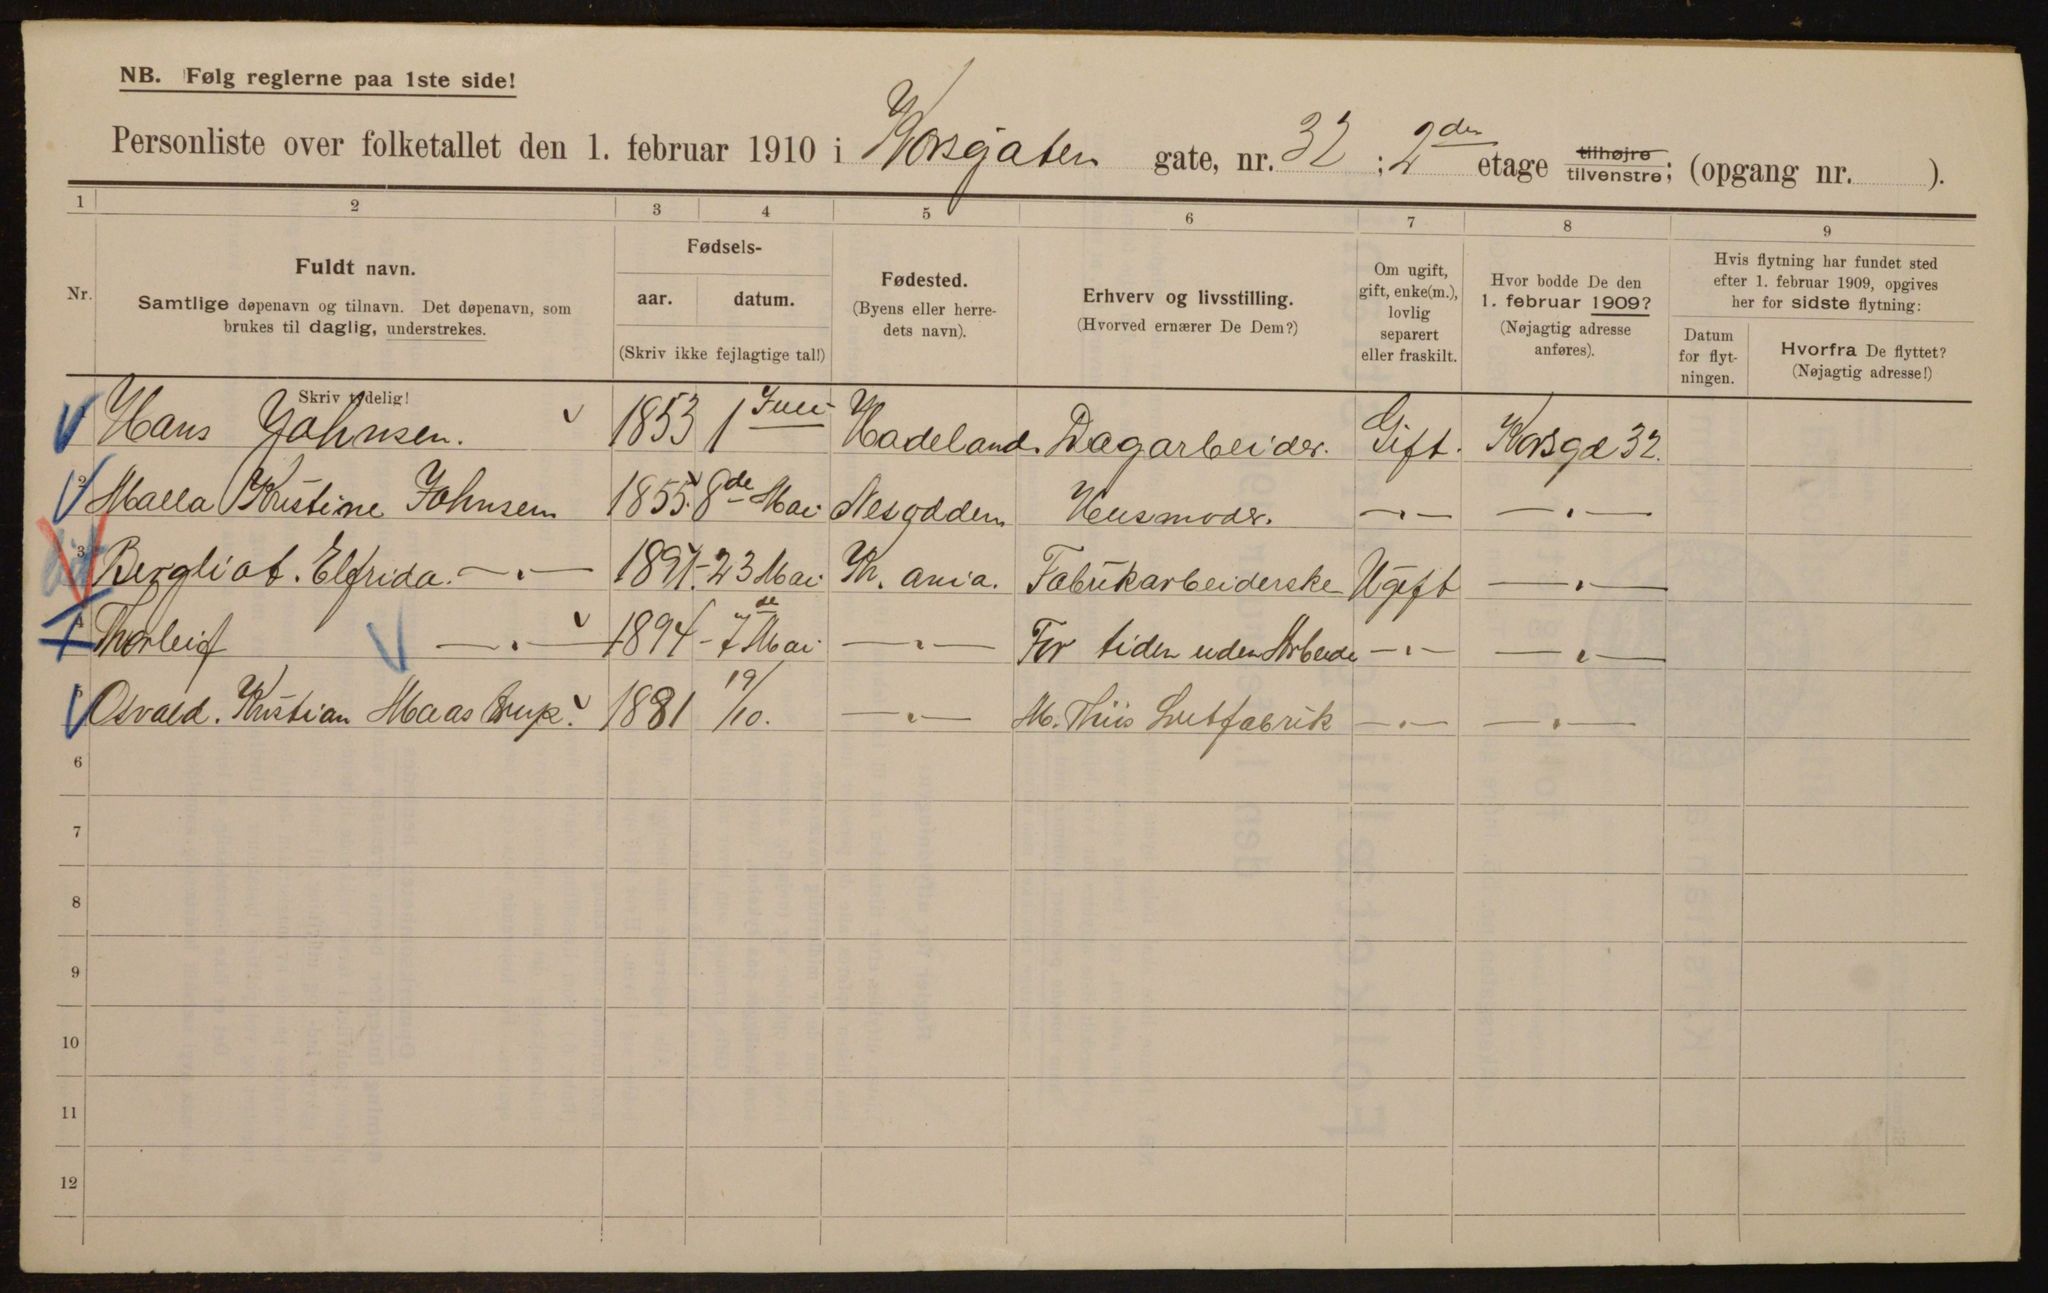 NB. Følg reglerne paa 1ste side!
Personliste over folketallet den 1. februar 1910 i Korsgaten gate, nr. 32 ; 2den etage tilhøjre tilvenstre; (opgang nr. ).
1 2 3 4 5 6 7 8 9
Nr.
Fuldt navn.
Samtlige døpenavn og tilnavn. Det døpenavn, som
brukes til daglig, understrekes.
Fødsels-
aar. datum.
(Skriv ikke fejlagtige tal!)
Fødested.
(Byens eller herre-
dets navn).
Erhverv og livsstilling.
(Hvorved ernærer De Dem?)
Om ugift,
gift, enke(m.),
lovlig
separert
eller fraskilt.
Hvor bodde De den
1. februar 1909?
(Nøjagtig adresse
anføres).
Hvis flytning har fundet sted
efter 1. februar 1909, opgives
her for sidste flytning:
Datum
for flyt-
ningen.
Hvorfra De flyttet?
(Nøjagtig adresse!)
Skriv tydelig!
Hans Johnsen. 1853 1 Juli Hadeland. Dagarbeider. Gift. Korsgd 32.
2 Malla Kristine Johnsen 1855 8de Mai Nesodden Husmoder. —„— —„—
3 Bergliot. Elfrida. —„— 1891 - 23 Mai Kr. ania. Fabrikarbeiderske Ugift —„—
4 Thorleif —„— 1894 - 7de Mai —„— For tiden uden Arbeide —„— —„—
5 Osvald. Kristian Maastrup. 1881 19/10. —„— M. Thiis Lutfabrik —„— —„—
6
7
8
9
10
11
12